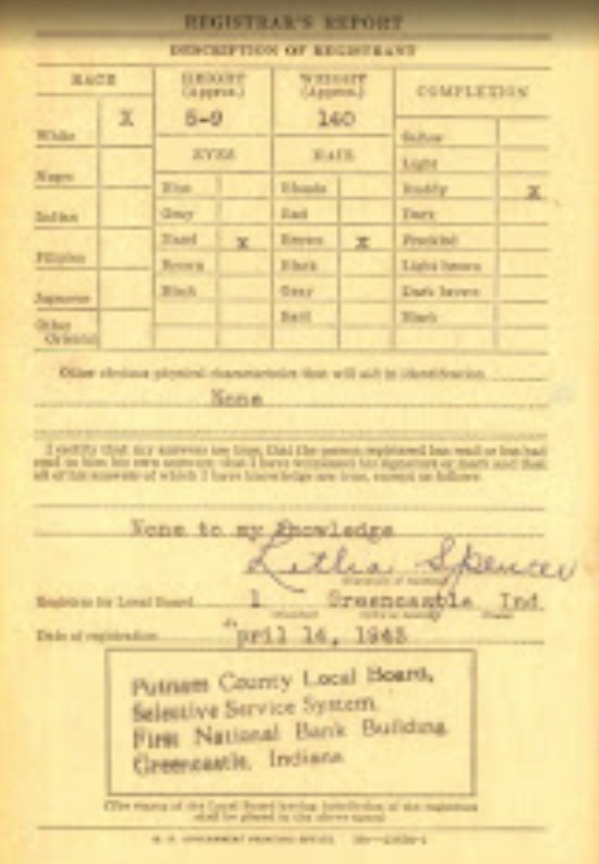 REGISTRAR'S REPORT
DESCRIPTION OF REGISTRANT
RACE
HEIGHT (Approx.)
WEIGHT (Approx.)
COMPLEXION
White X
5-9
140
Sallow
EYES
HAIR
Light
Negro
Blue
Blonde
Ruddy X
Indian
Gray
Red
Dark
Hazel X
Brown X
Freckled
Filipino
Brown
Black
Light brown
Japanese
Black
Gray
Dark brown
Bald
Black
Other Oriental
Other obvious physical characteristics that will aid in identification
None
I certify that my answers are true; that the person registered has read or has had
read to him his own answers; that I have witnessed his signature or mark and that
all of his answers of which I have knowledge are true, except as follows:
None to my knowledge
Letha Spencer
Registrar for Local Board 1 Greencastle Ind
Date of registration April 14, 1943
Putnam County Local Board,
Selective Service System.
First National Bank Building
Greencastle, Indiana
(The stamp of the Local Board having jurisdiction of the registrant
shall be placed in the above space)
U. S. GOVERNMENT PRINTING OFFICE